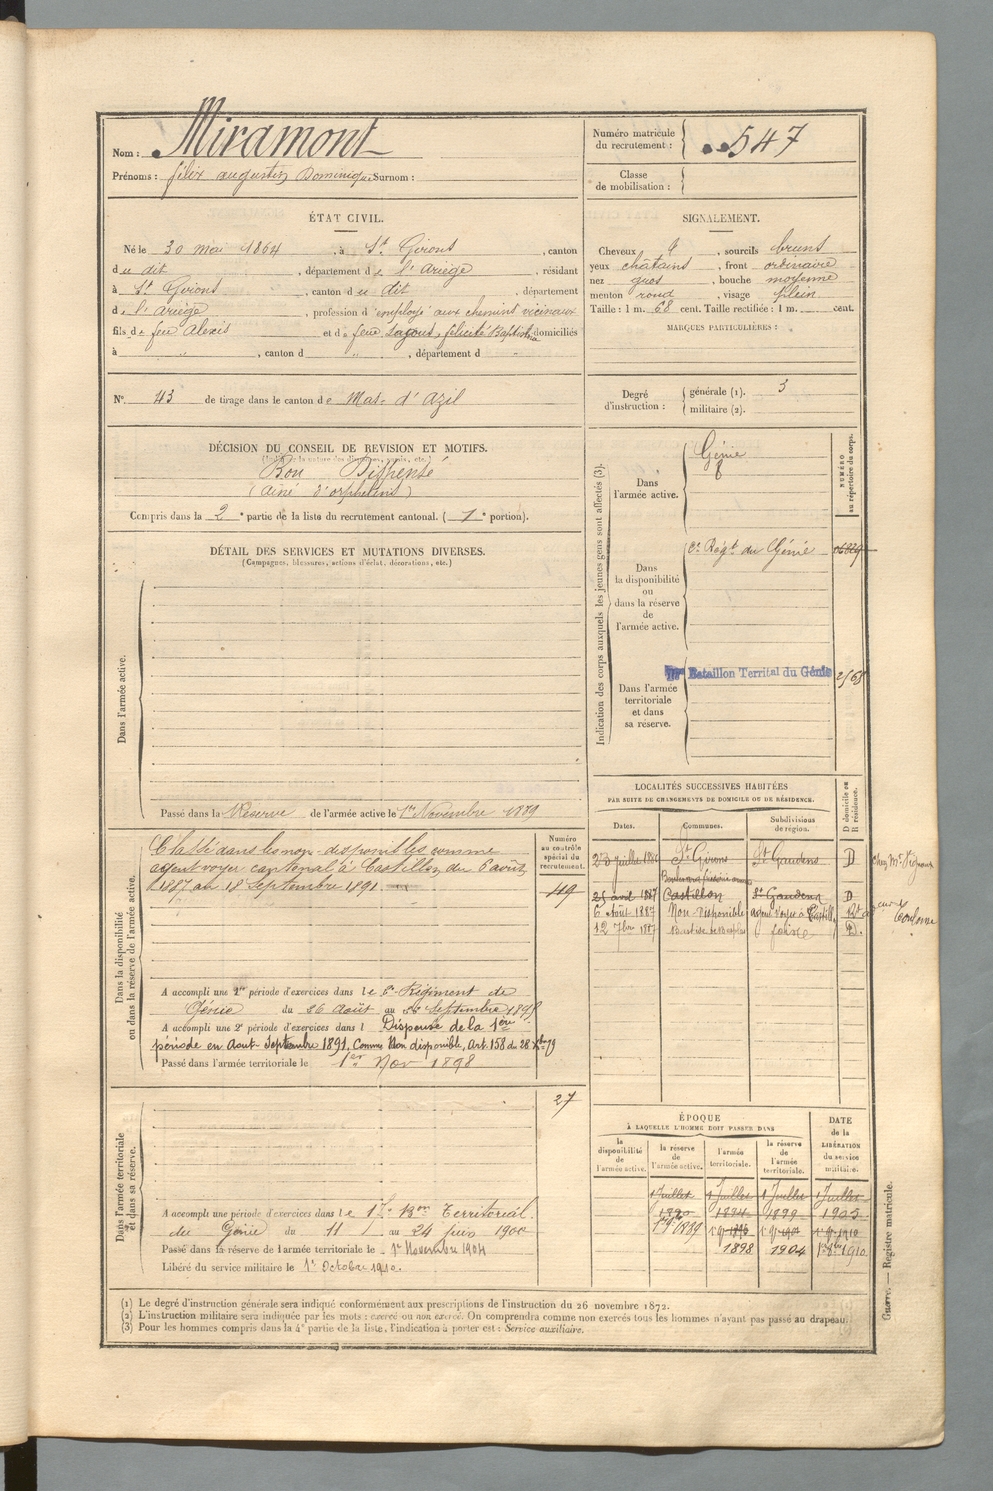 Nom : Miramont
Prénoms : félix augustin Dominique Surnom :
Numéro matricule du recrutement : 547
Classe de mobilisation :
ÉTAT CIVIL.
Né le 30 mai 1864, à St. Girons, canton
du dit, département de l'Ariège, résidant
à St Girons, canton du dit, département
de l'Ariège, profession d'employé aux chemins vicinaux
fils de feu Alexis et de feue Lagous, félicité Baptistine domiciliés
à " , canton d " , département d "
SIGNALEMENT.
Cheveux d , sourcils bruns
yeux chatains , front ordinaire
nez gros , bouche moyenne
menton rond , visage plein
Taille : 1 m. 68 cent. Taille rectifiée : 1 m. cent.
MARQUES PARTICULIÈRES :
N° 43 de tirage dans le canton de Mas-d'Azil
Degré d'instruction : générale (1). 3
militaire (2).
DÉCISION DU CONSEIL DE REVISION ET MOTIFS.
Bon Dispensé
(aîné d'orphelins)
Compris dans la 2e partie de la liste du recrutement cantonal. (1e portion).
DÉTAIL DES SERVICES ET MUTATIONS DIVERSES.
(Campagnes, blessures, actions d'éclat, décorations, etc.)
Dans l'armée active.
Passé dans la Réserve de l'armée active le 1er Novembre 1889
Indication des corps auxquels les jeunes gens sont affectés (3).
NUMÉRO au répertoire du corps.
Dans l'armée active.
Génie
Dans la disponibilité ou dans la réserve de l'armée active.
2e Régt du Génie
Dans l'armée territoriale et dans sa réserve.
Bataillon Territal du Génie
LOCALITÉS SUCCESSIVES HABITÉES
PAR SUITE DE CHANGEMENTS DE DOMICILE OU DE RÉSIDENCE.
Dates. Communes. Subdivisions de région. D domicile ou R résidence.
St Girons St Gaudens D
25 avril 1887 Castillon St Gaudens D
6 Août 1887 Non Disponible agent voyer à Castillon
12 7bre 1887 D.
Dans la disponibilité ou dans la réserve de l'armée active.
Numéro au contrôle spécial du recrutement.
Classé dans les non-disponibles comme
agent voyer cantonal à Castillon du 6 août
1887 au 18 Septembre 1891.
49
A accompli une 1re période d'exercices dans le 2e Régiment de
Génie du 26 août au 22 Septembre 1895
A accompli une 2e période d'exercices dans l Dispensé de la 1ère
période en Aout-Septembre 1891, Comme Non disponible, Art. 158 du 28 Xbre 79
Passé dans l'armée territoriale le 1er Nov 1898
27
Dans l'armée territoriale et dans sa réserve.
A accompli une période d'exercices dans le Bon Territorial
du Génie du 11 au 24 juin 1900
Passé dans la réserve de l'armée territoriale le 1er Novembre 1904
Libéré du service militaire le 1er Octobre 1910.
ÉPOQUE
À LAQUELLE L'HOMME DOIT PASSER DANS
DATE de la LIBÉRATION du service militaire.
la disponibilité de l'armée active. la réserve de l'armée active. l'armée territoriale. la réserve de l'armée territoriale.
1 Juillet 1 Juillet 1 Juillet 1 Juillet
1890 1894 1899 1905
1898 1904 1910
(1) Le degré d'instruction générale sera indiqué conformément aux prescriptions de l'instruction du 26 novembre 1872.
(2) L'instruction militaire sera indiquée par les mots : exercé ou non exercé. On comprendra comme non exercés tous les hommes n'ayant pas passé au drapeau.
(3) Pour les hommes compris dans la 4e partie de la liste, l'indication à porter est : Service auxiliaire.
Guerre. — Registre matricule.